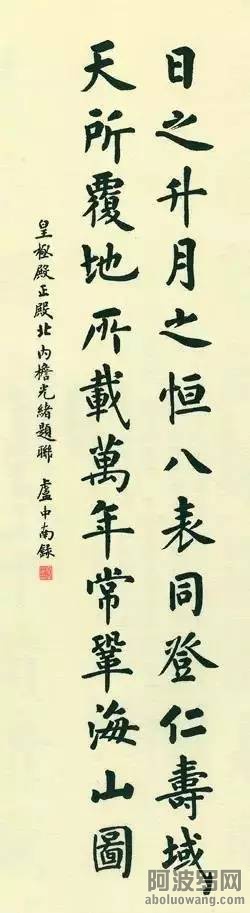 日之升月之恒八表同登仁壽域
天所覆地所載萬年常鞏海山圖
皇極殿正殿北內檐光緒題聯 盧中南錄
阿波羅网
www.aboluowang.com